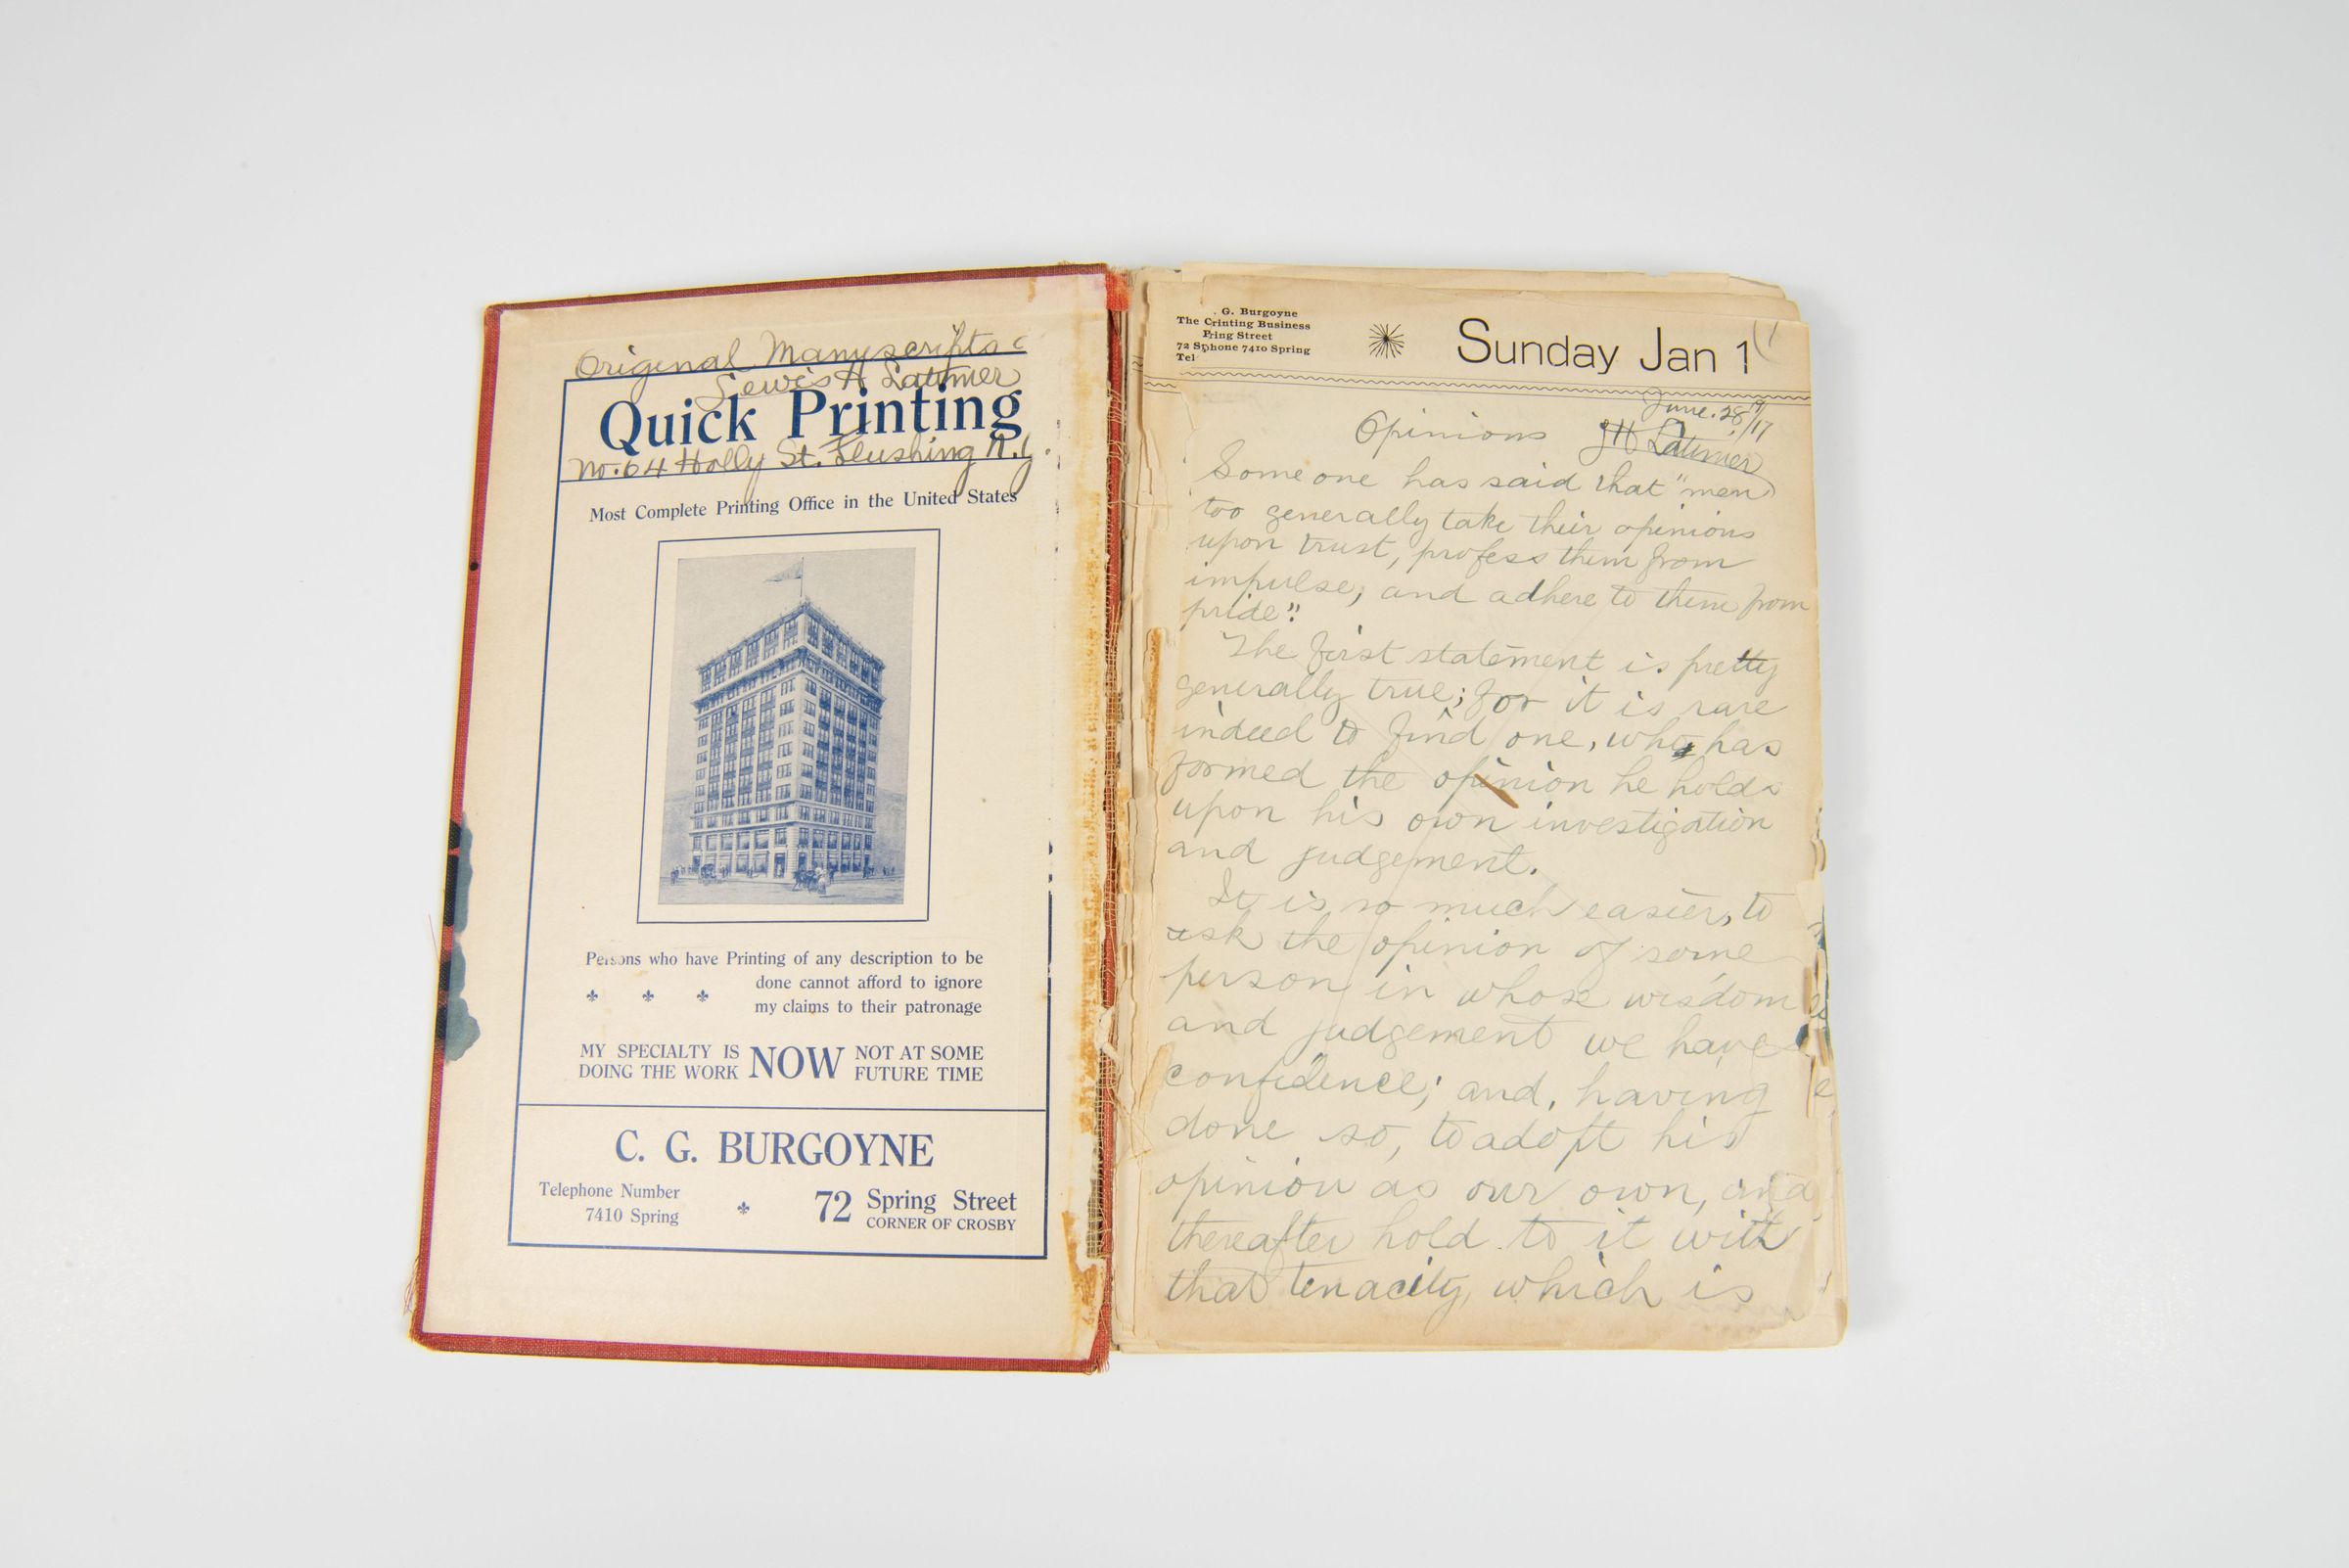 Original Manuscripts
Lewis H Latimer
Quick Printing
No. 64 Holly St. Flushing N.Y.
Most Complete Printing Office in the United States
Persons who have Printing of any description to be
done cannot afford to ignore
my claims to their patronage
MY SPECIALTY IS NOW NOT AT SOME
DOING THE WORK FUTURE TIME
C. G. BURGOYNE
Telephone Number
7410 Spring
72 Spring Street
CORNER OF CROSBY
. G. Burgoyne
The Printing Business
Spring Street
72 Sphone 7410 Spring
Tel
Sunday Jan 1
June. 28/17
Opinions LH Latimer
Some one has said that "men
too generally take their opinions
upon trust, profess them from
impulse, and adhere to them from
pride".
The first statement is pretty
generally true; for it is rare
indeed to find one, who has
formed the opinion he holds
upon his own investigation
and judgement.
It is so much easier, to
ask the opinion of some
person in whose wisdom
and judgement we have
confidence; and, having
done so, to adopt his
opinion as our own, and
thereafter hold to it with
that tenacity, which is